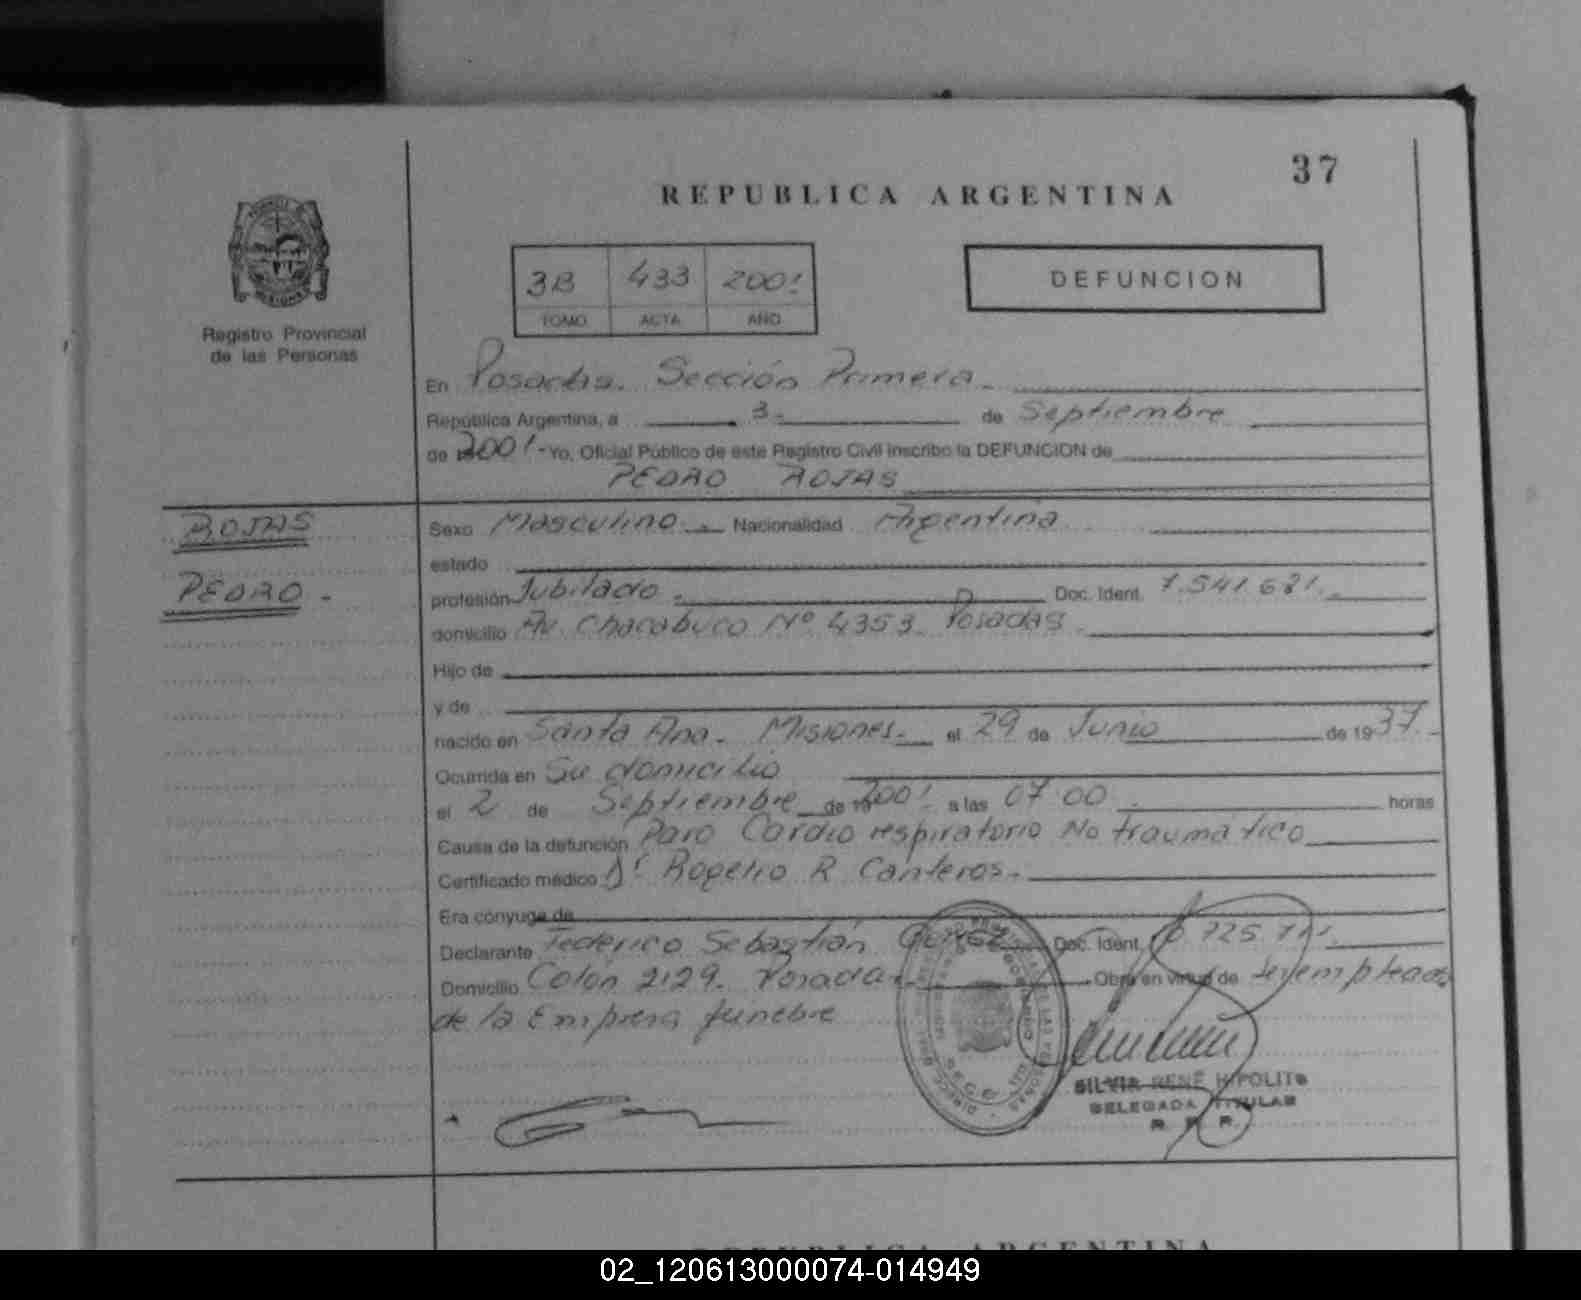 37
REPUBLICA ARGENTINA
3B 433 2001
TOMO ACTA AÑO
DEFUNCION
Registro Provincial
de las Personas
En Posadas. Sección Primera
República Argentina, a 3 de Septiembre
de 2001 - Yo, Oficial Público de este Registro Civil inscribo la DEFUNCION de
PEDRO ROJAS
ROJAS
PEDRO -
Sexo Masculino Nacionalidad Argentina
estado
profesión Jubilado Doc. Ident. 7.541.621
domicilio Av. Chacabuco Nº 4353 Posadas
Hijo de
y de
nacido en Santa Ana - Misiones el 29 de Junio de 1937
Ocurrida en Su domicilio
el 2 de Septiembre de 2001 a las 07 00 horas
Causa de la defunción Paro Cardio respiratorio No traumático
Certificado médico Dr Rogelio R Canteros
Era cónyuge de
Declarante Federico Sebastián Doc. Ident.
Domicilio Colon 2129 - Posadas Obra en virtud de ser empleado
de la Empresa funebre
SILVIA RENÉ HIPOLITO
DELEGADA TITULAR
R. P. P.
REPUBLICA ARGENTINA
02_120613000074-014949